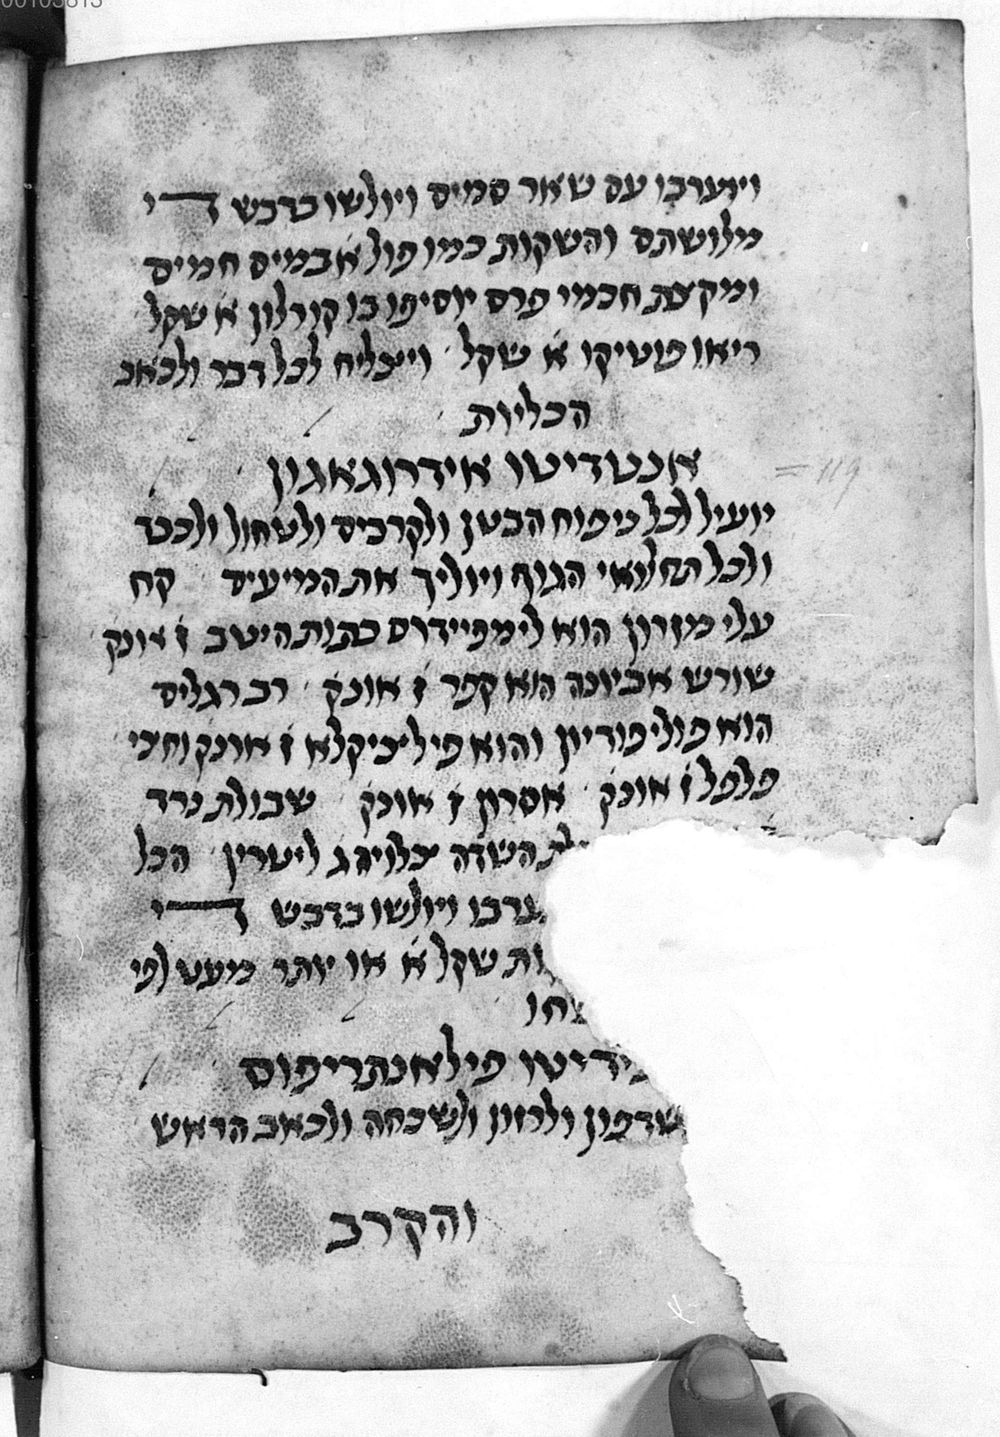 00105813
ויתערבו עם שאר סמים ויולשו בדבש די
מלושתם והשקות כמו פול א במים חמים
ומקצת חכמי פרס יוסיפו בו קורלון א שקל
ריאו פוטיקו א שקל ויצליח לכל דבר ולכאב
הכליות
אנטדיטו אידרוגאגון
יועיל לכל ניפוח הבטן ולקרבים ולטחול ולכבד
ולכל תחלואי הגוף ויוליך את המיעים קח
עלי מזרון הוא לימפיידרס כתות היטב ז אונק
שורש אביונה הוא קפר ז אונק רב רגלים
הוא פוליפודיון והוא פיליביקלא ז אונק וחצי
פלפל ז אונק אסרון ז אונק שבולת נרד
השדה צלויה ג ליטרין הכל
ויולשו בדבש די
שקל א או יותר מעט לפי
פילאנתריפוס
שדפון ולרזון ולשכחה ולכאב הראש
והקרב
119